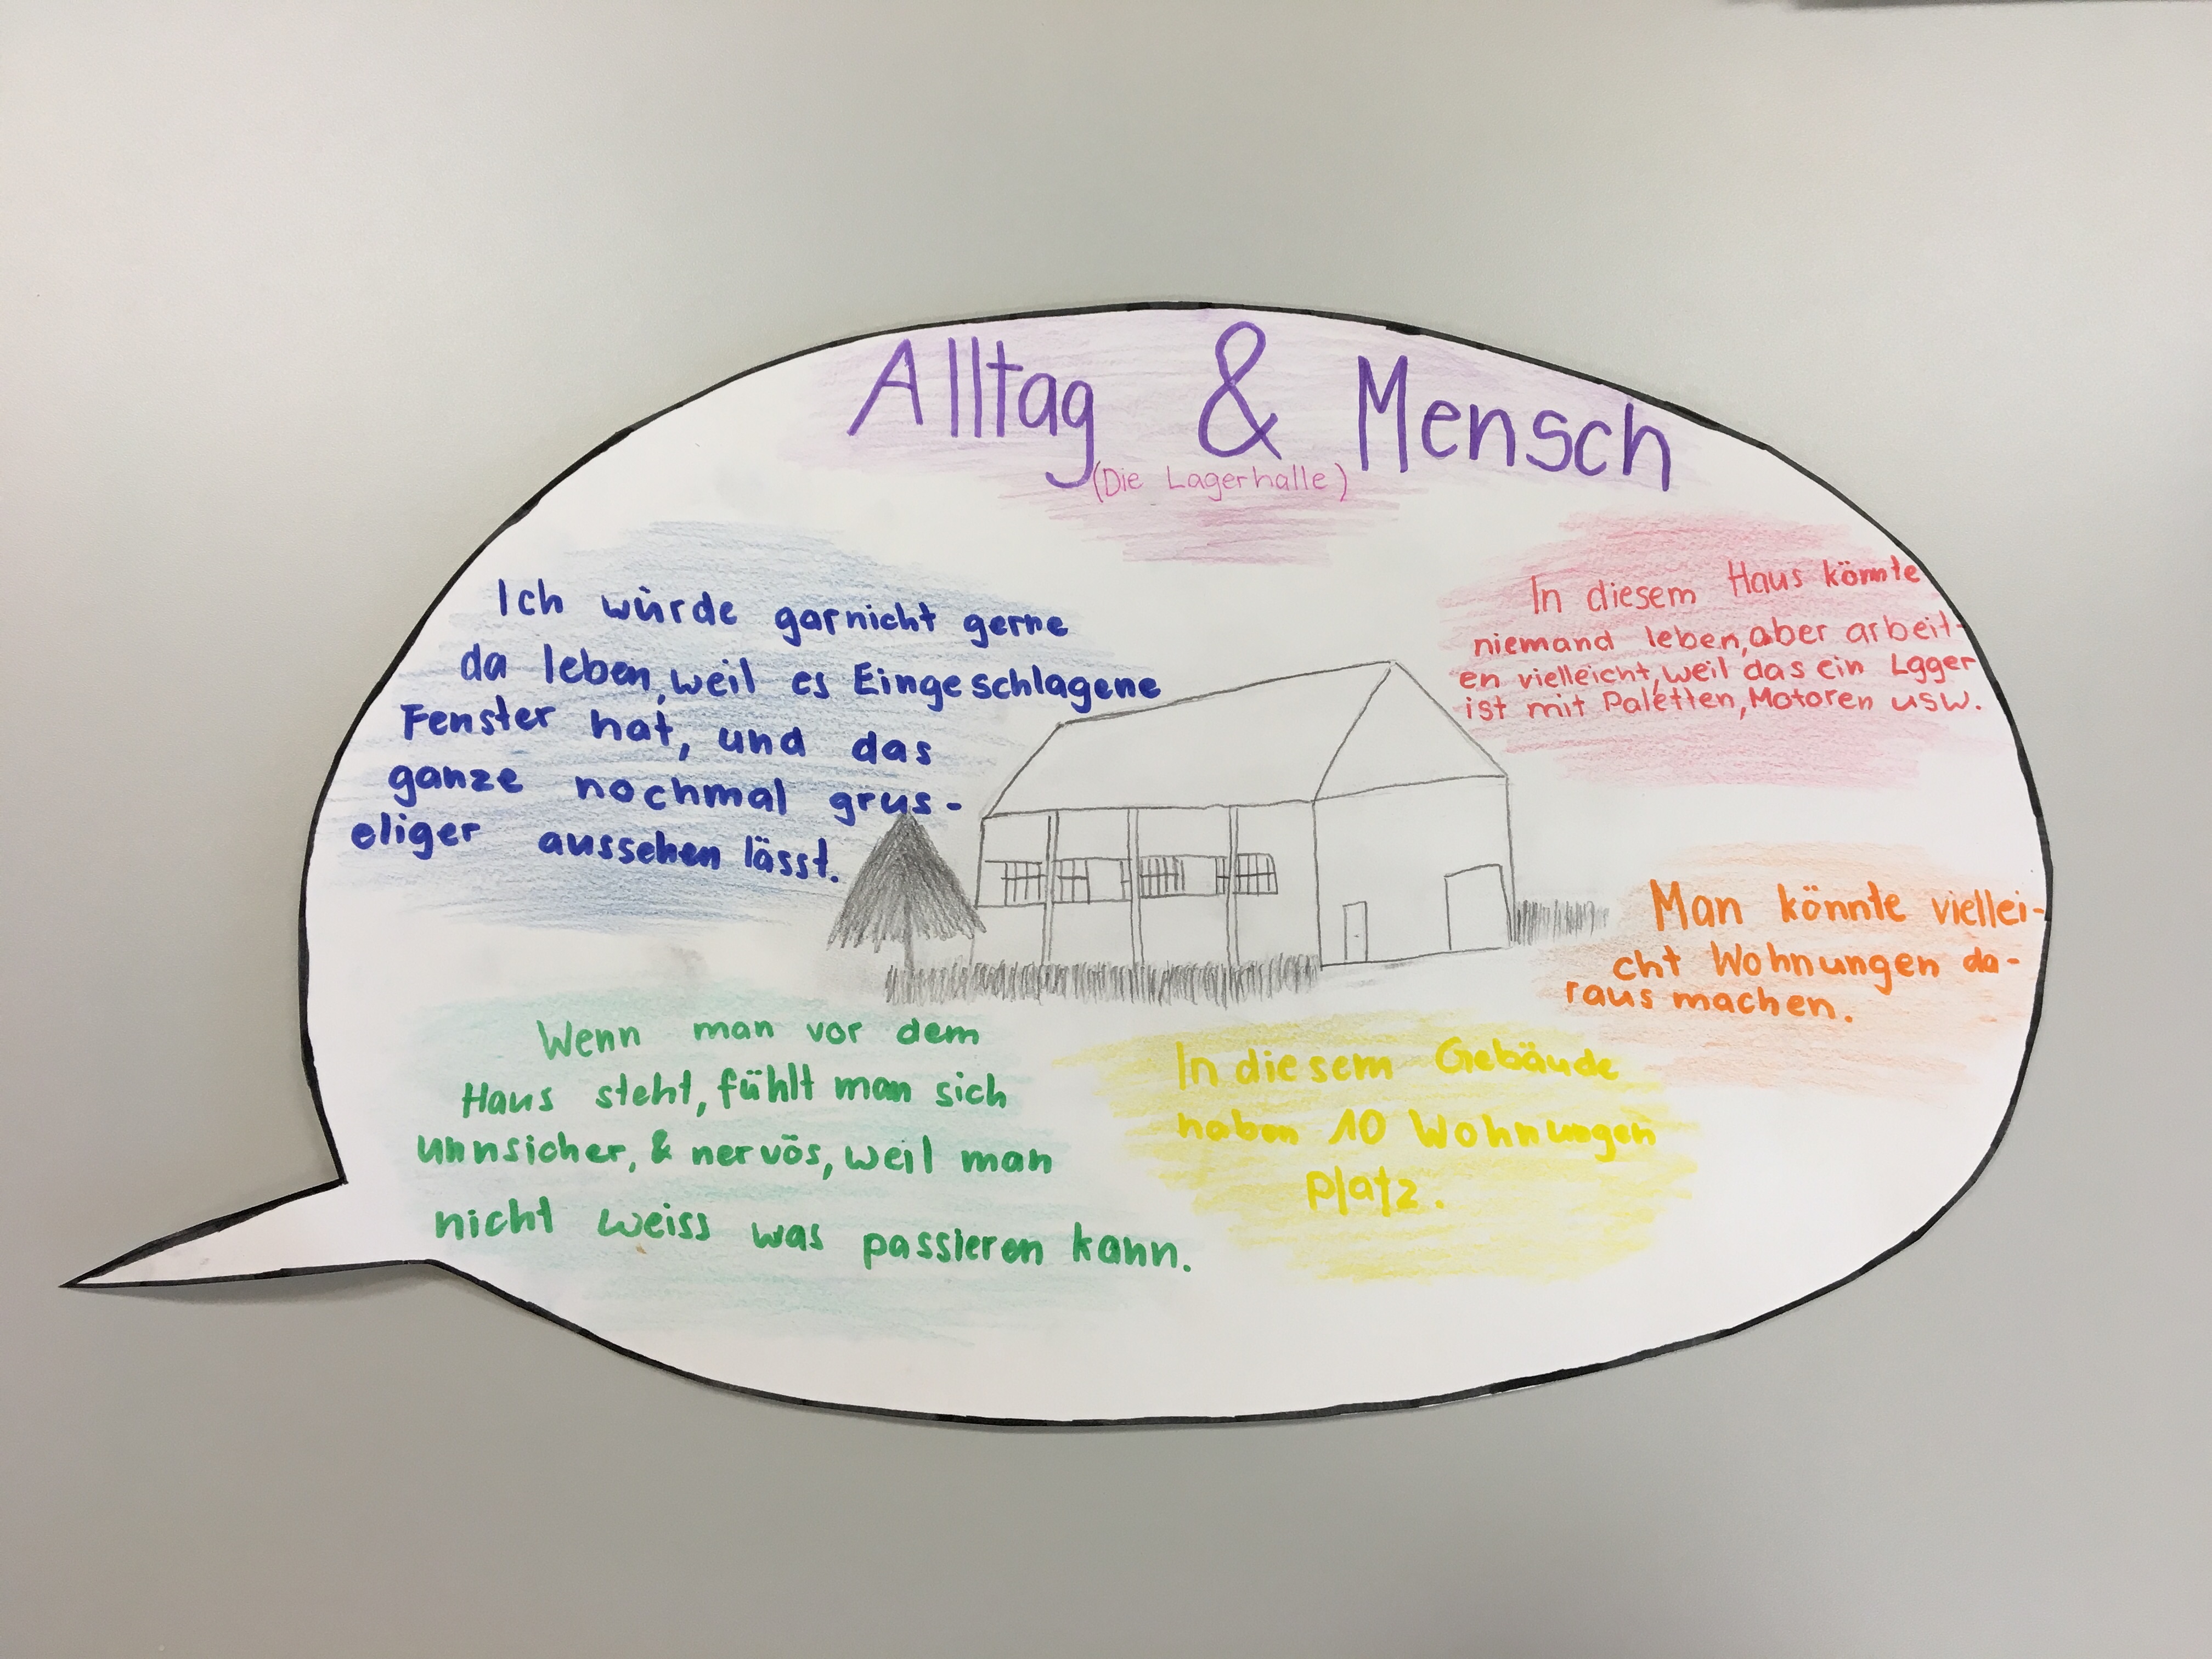 Alltag & Mensch
(Die Lagerhalle)
Ich würde garnicht gerne
da leben, weil es Eingeschlagene
Fenster hat, und das
ganze nochmal grus-
eliger aussehen lässt.
In diesem Haus könnte
niemand leben, aber arbeit-
en vielleicht, weil das ein Lager
ist mit Paletten, Motoren usw.
Man könnte viellei-
cht Wohnungen da-
raus machen.
Wenn man vor dem
Haus steht, fühlt man sich
unnsicher, & nervös, weil man
nicht weiss was passieren kann.
In diesem Gebäude
haben 10 Wohnungen
platz.